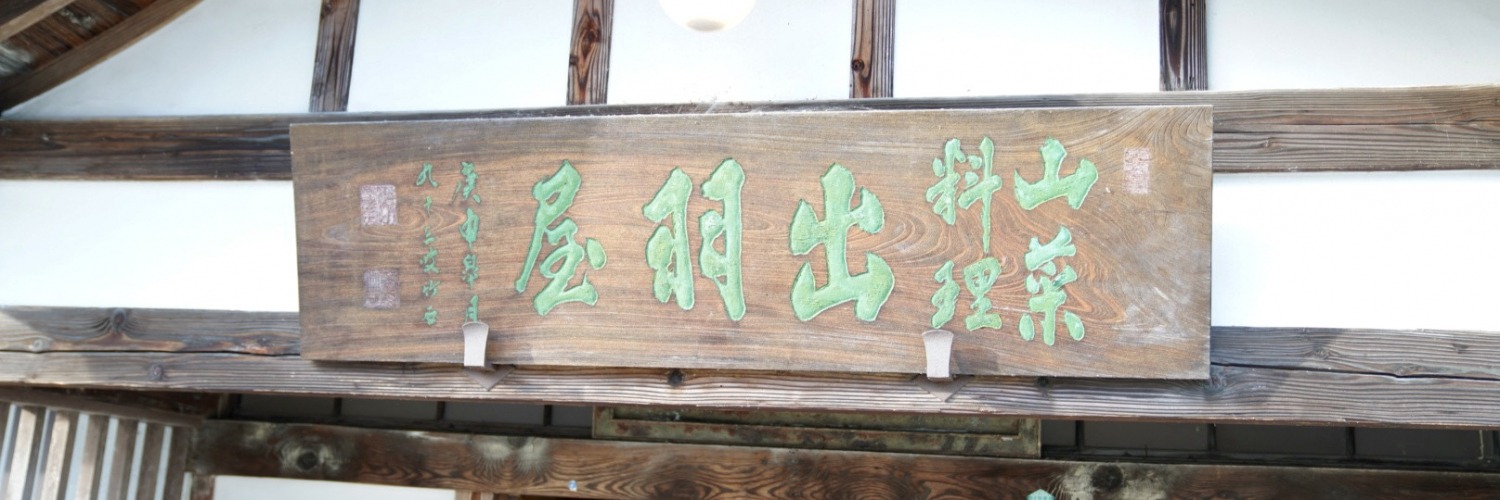 山菜
料理
出羽屋
庚申皐月